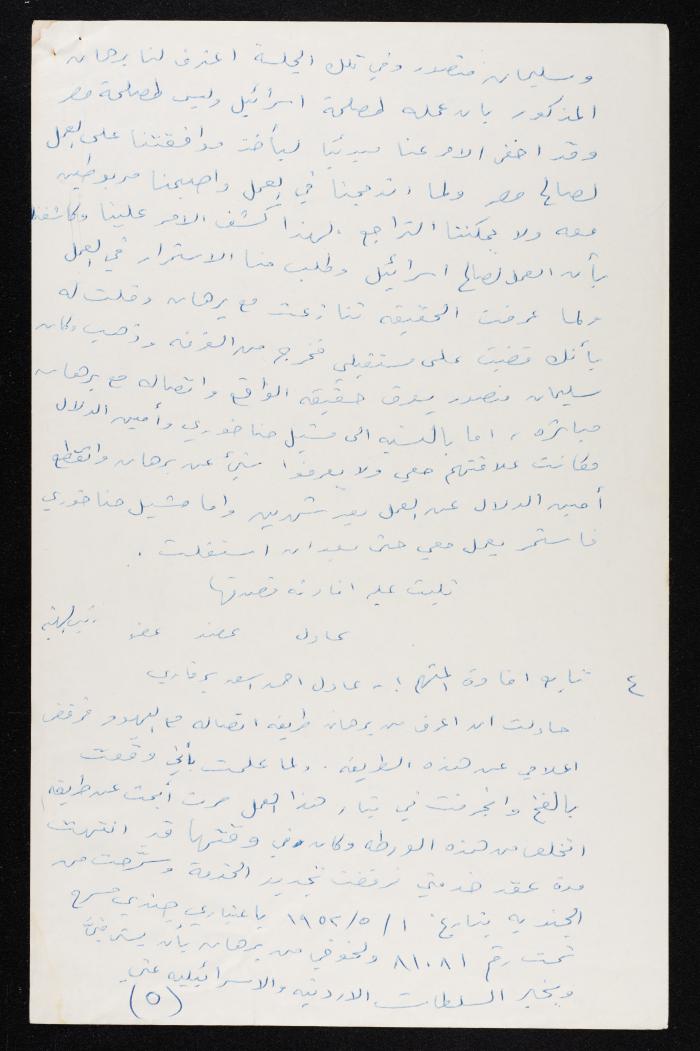 وسليمان منصور وفي تلك الجلسة اعترف لنا برهان
المذكور بان عمله لمصلحة اسرائيل وليس لمصلحة مصر
وقد اخفى الامر عنا مبدئيا ليأخذ موافقتنا على العمل
لصالح مصر ولما اندمجنا في العمل واصبحنا مربوطين
معه ولا يمكننا التراجع لهذا كشف الامر علينا وكاشفنا
بأن العمل لصالح اسرائيل وطلب منا الاستمرار في العمل
ولما عرفت الحقيقه تنازعت مع برهان وقلت له
بأنك قضيت على مستقبلي فخرج من الغرفه وذهب وكان
سليمان منصور يعرف حقيقه الواقع واتصاله مع برهان
مباشره ، اما بالنسبه الى مشيل حنا خوري وأمين الدلال
فكانت علاقتهم معي ولا يعرفوا شيئ عن برهان وانقطع
أمين الدلال عن العمل بعد شهرين واما مشيل حنا خوري
فاستمر يعمل معي حتى بعد ان استقلت .
تليت عليه افادته فصدقها
عادل عضو عضو رئيس الهيئة
٤ تابع افادة المتهم :- عادل احمد اسعد برقاري
حاولت ان اعرف من برهان طريقه اتصاله مع اليهود فرفض
اعلامي عن هذه الطريقه . ولما علمت بأني وقعت
بالفخ وانجرفت في تيار هذا العمل صرت أبحث عن طريقه
اتخلص من هذه الورطه وكان في وقتها قد انتهت
مدة عقد خدمتي فرفضت تجديد الخدمة وسرحت من
الجنديه بتاريخ ١/٥/١٩٥٢ باعتباري جندي مسرح
تحت رقم ٨١٠٨١ ولخوفي من برهان بأن يشي بي
ويخبر السلطات الاردنيه والاسرائيليه عني
(٥)